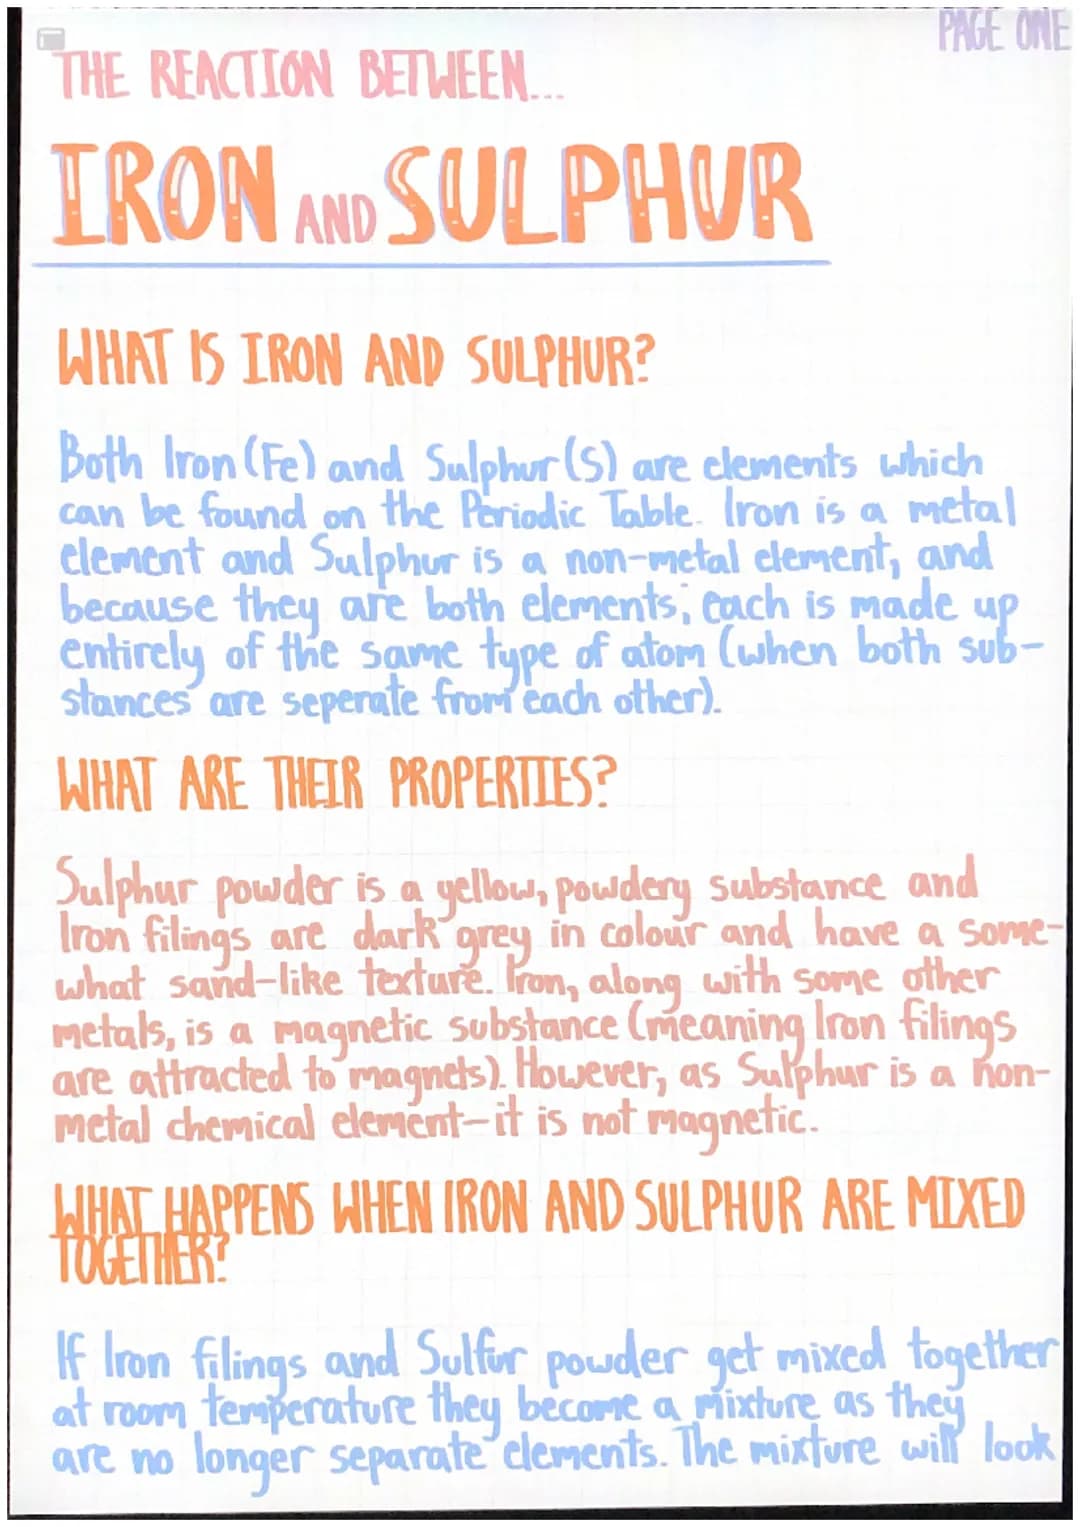 PAGE ONE
THE REACTION BETWEEN...
IRON AND SULPHUR
WHAT IS IRON AND SULPHUR?
Both Iron (Fe) and Sulphur (S) are elements which
can be found on the Periodic Table. Iron is a metal
element and Sulphur is a non-metal element, and
because they are both elements; each is made up
entirely of the same type of atom (when both sub-
stances are seperate from each other).
WHAT ARE THEIR PROPERTIES?
Sulphur powder is a yellow, powdery substance and
Iron filings are dark grey in colour and have a some-
what sand-like texture. Iron, along with some other
metals, is a magnetic substance (meaning Iron filings
are attracted to magnets). However, as Sulphur is a non-
metal chemical element-it is not magnetic.
WHAT HAPPENS WHEN IRON AND SULPHUR ARE MIXED
TOGETHER?
If Iron filings and Sulfur powder get mixed together
at room temperature they become a mixture as they
are no longer separate elements. The mixture will look